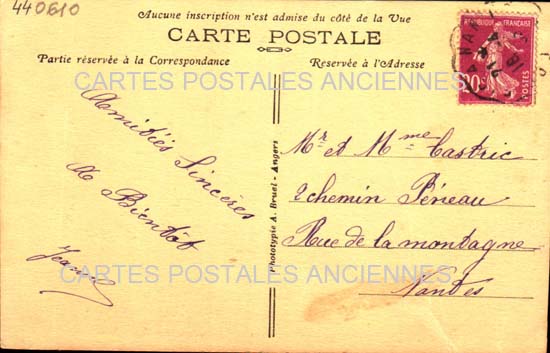 440610
Aucune inscription n'est admise du côté de la Vue
CARTE POSTALE
Partie réservée à la Correspondance
Reservée à l'Adresse
REPUBLIQUE FRANÇAISE
20c
POSTES
CARTES POSTALES ANCIENNES
Amitiés Sincères
A Bientôt
Jeanne
Phototypie A. Bruel - Angers
Mr et Mme Castric
2 chemin Péneau
Rue de la montagne
Nantes
CARTES POSTALES ANCIENNES